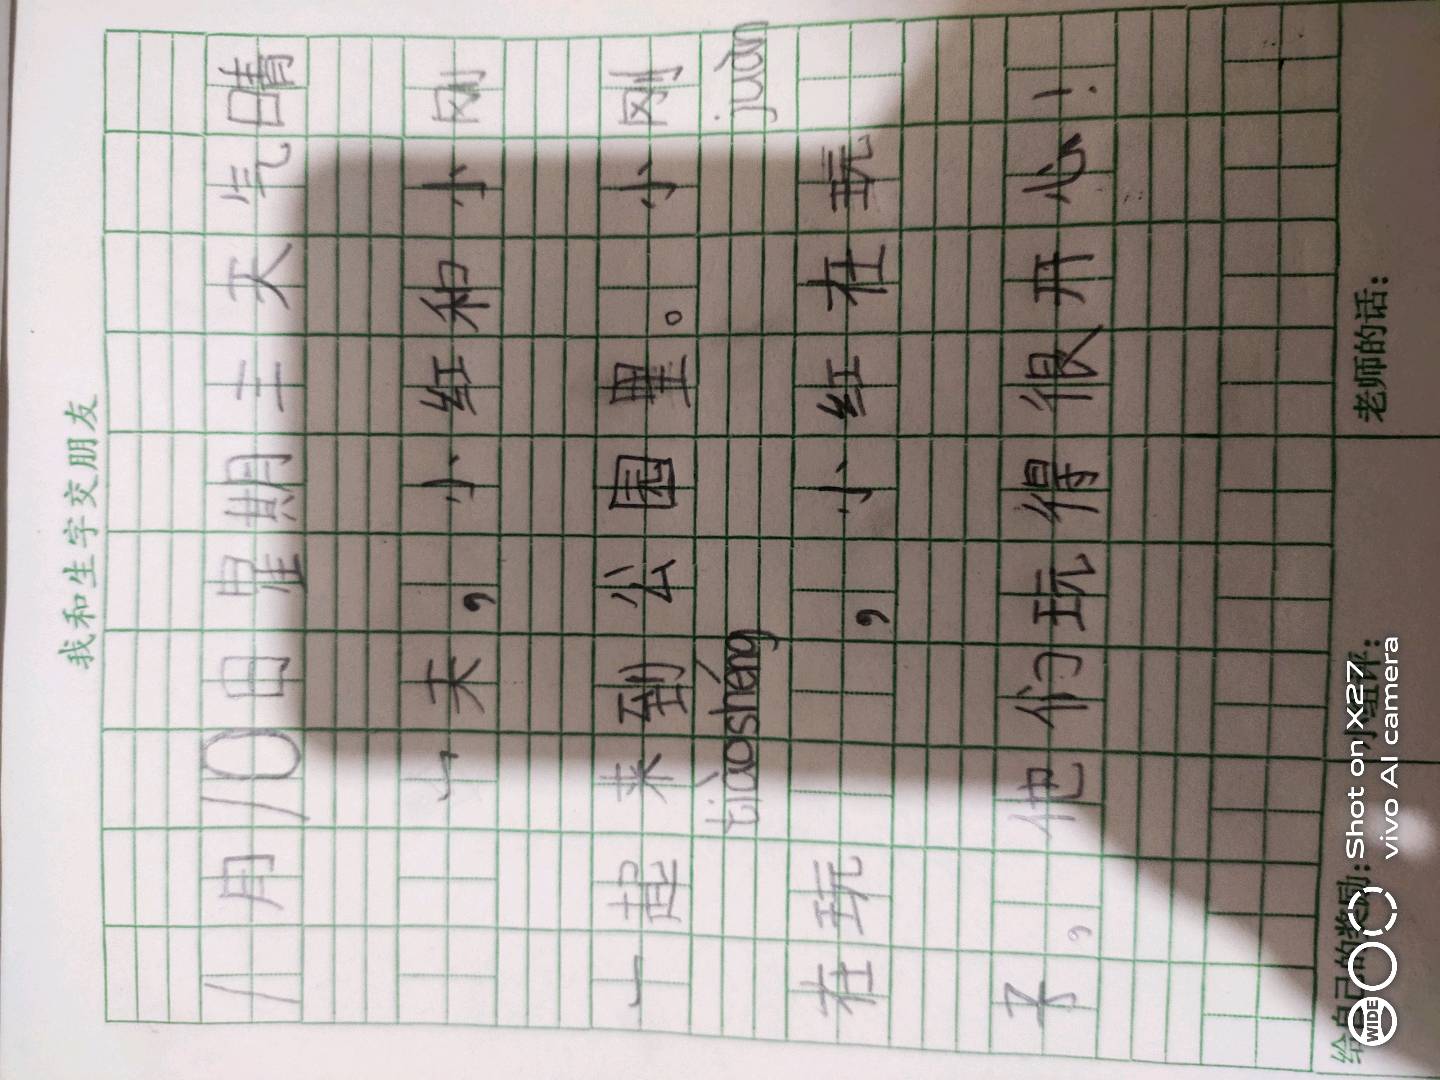 我和生字交朋友
1月10日星期三天气晴
一天,小红和小刚
一起来到公园里。小刚
tiàoshéng juàn
在玩 ,小红在玩
子,他们玩得很开心!
给自己的奖励: 小组评: 老师的话:
WIDE
Shot on X27
vivo AI camera